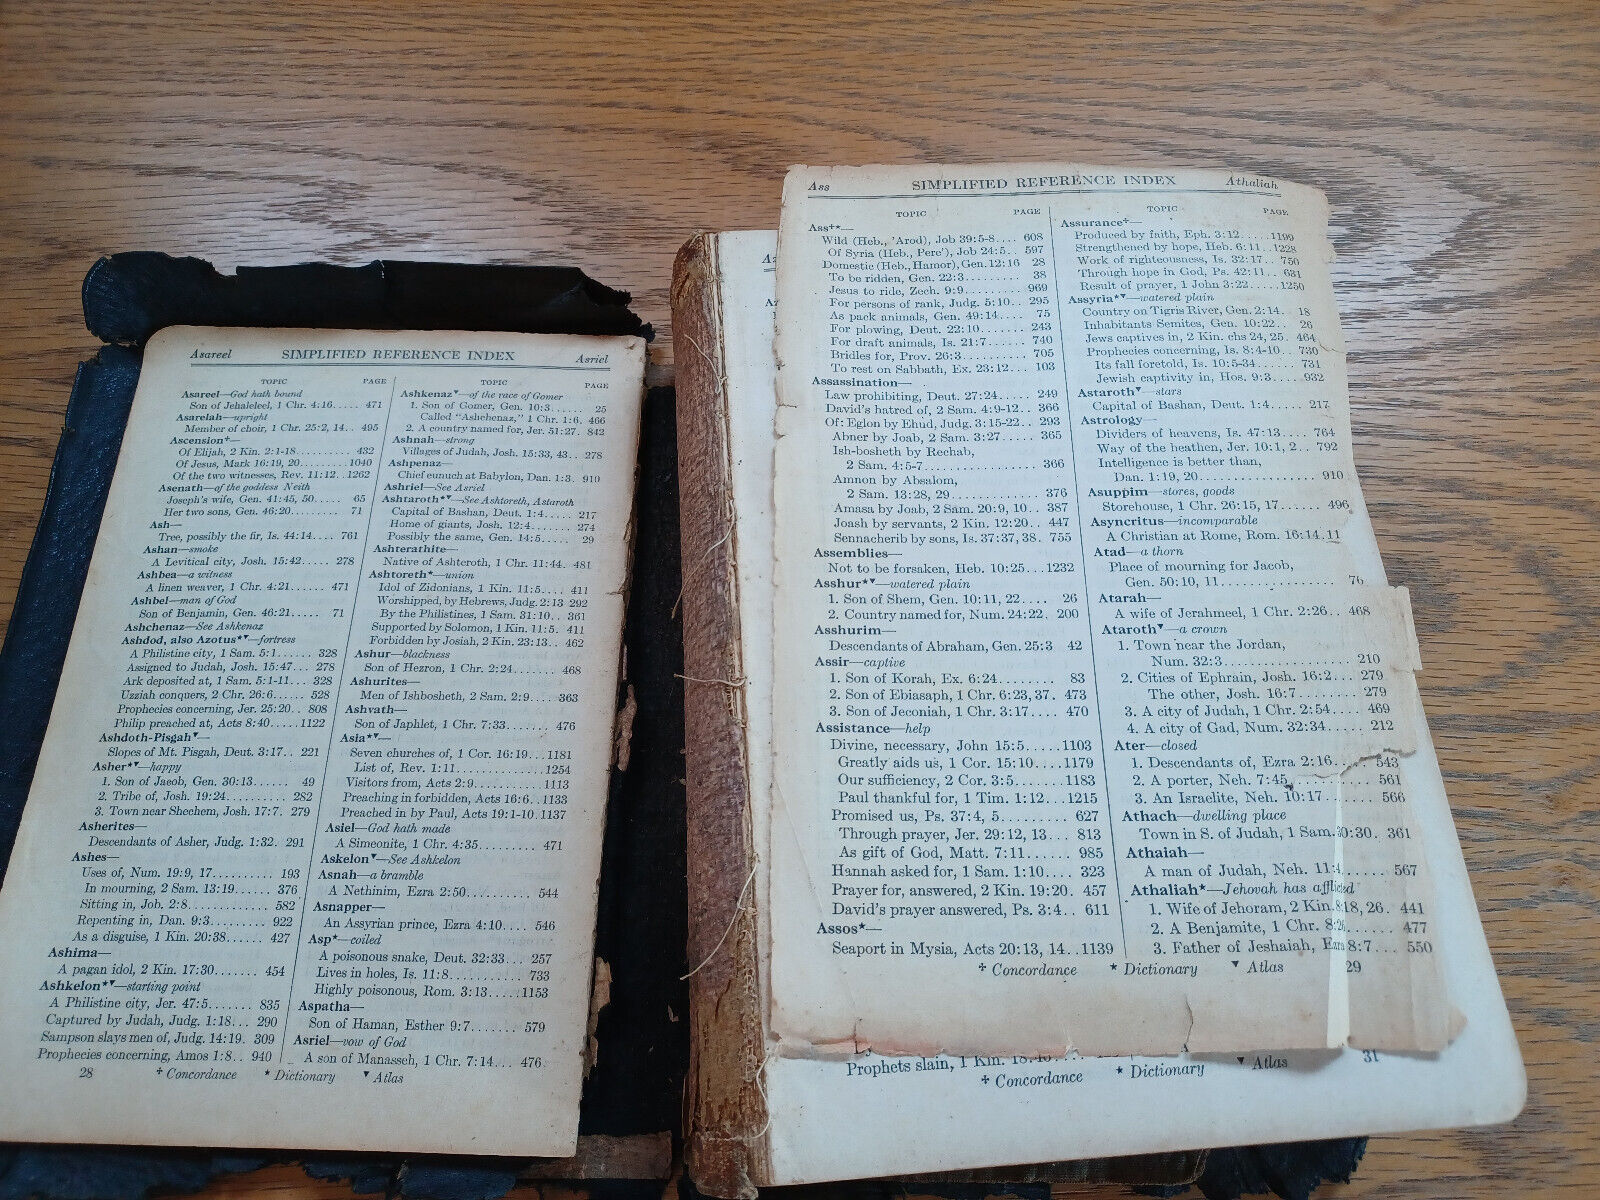 Asareel SIMPLIFIED REFERENCE INDEX Asriel
TOPIC PAGE
Asareel—God hath bound
Son of Jehaleleel, 1 Chr. 4:16..... 471
Asarelah—upright
Member of choir, 1 Chr. 25:2, 14.. 495
Ascension+—
Of Elijah, 2 Kin. 2:1-18.......... 432
Of Jesus, Mark 16:19, 20..........1040
Of the two witnesses, Rev. 11:12..1262
Asenath—of the goddess Neith
Joseph's wife, Gen. 41:45, 50..... 65
Her two sons, Gen. 46:20......... 71
Ash—
Tree, possibly the fir, Is. 44:14.... 761
Ashan—smoke
A Levitical city, Josh. 15:42...... 278
Ashbea—a witness
A linen weaver, 1 Chr. 4:21...... 471
Ashbel—man of God
Son of Benjamin, Gen. 46:21..... 71
Ashchenaz—See Ashkenaz
Ashdod, also Azotus*▼—fortress
A Philistine city, 1 Sam. 5:1...... 328
Assigned to Judah, Josh. 15:47... 278
Ark deposited at, 1 Sam. 5:1-11... 328
Uzziah conquers, 2 Chr. 26:6..... 528
Prophecies concerning, Jer. 25:20.. 808
Philip preached at, Acts 8:40.....1122
Ashdoth-Pisgah▼—
Slopes of Mt. Pisgah, Deut. 3:17.. 221
Asher*▼—happy
1. Son of Jacob, Gen. 30:13...... 49
2. Tribe of, Josh. 19:24.......... 282
3. Town near Shechem, Josh. 17:7. 279
Asherites—
Descendants of Asher, Judg. 1:32. 291
Ashes—
Uses of, Num. 19:9, 17.......... 193
In mourning, 2 Sam. 13:19...... 376
Sitting in, Job. 2:8.............. 582
Repenting in, Dan. 9:3.......... 922
As a disguise, 1 Kin. 20:38...... 427
Ashima—
A pagan idol, 2 Kin. 17:30....... 454
Ashkelon*▼—starting point
A Philistine city, Jer. 47:5....... 835
Captured by Judah, Judg. 1:18... 290
Sampson slays men of, Judg. 14:19. 309
Prophecies concerning, Amos 1:8.. 940
TOPIC PAGE
Ashkenaz▼—of the race of Gomer
1. Son of Gomer, Gen. 10:3...... 25
Called "Ashchenaz," 1 Chr. 1:6. 466
2. A country named for, Jer. 51:27. 842
Ashnah—strong
Villages of Judah, Josh. 15:33, 43.. 278
Ashpenaz—
Chief eunuch at Babylon, Dan. 1:3. 910
Ashriel—See Asriel
Ashtaroth*▼—See Ashtoreth, Astaroth
Capital of Bashan, Deut. 1:4..... 217
Home of giants, Josh. 12:4....... 274
Possibly the same, Gen. 14:5..... 29
Ashterathite—
Native of Ashteroth, 1 Chr. 11:44. 481
Ashtoreth*—union
Idol of Zidonians, 1 Kin. 11:5.... 411
Worshipped, by Hebrews, Judg. 2:13 292
By the Philistines, 1 Sam. 31:10.. 361
Supported by Solomon, 1 Kin. 11:5. 411
Forbidden by Josiah, 2 Kin. 23:13.. 462
Ashur—blackness
Son of Hezron, 1 Chr. 2:24....... 468
Ashurites—
Men of Ishbosheth, 2 Sam. 2:9.... 363
Ashvath—
Son of Japhlet, 1 Chr. 7:33....... 476
Asia*▼—
Seven churches of, 1 Cor. 16:19...1181
List of, Rev. 1:11..............1254
Visitors from, Acts 2:9..........1113
Preaching in forbidden, Acts 16:6..1133
Preached in by Paul, Acts 19:1-10.1137
Asiel—God hath made
A Simeonite, 1 Chr. 4:35........ 471
Askelon▼—See Ashkelon
Asnah—a bramble
A Nethinim, Ezra 2:50.......... 544
Asnapper—
An Assyrian prince, Ezra 4:10.... 546
Asp*—coiled
A poisonous snake, Deut. 32:33... 257
Lives in holes, Is. 11:8.......... 733
Highly poisonous, Rom. 3:13.....1153
Aspatha—
Son of Haman, Esther 9:7....... 579
Asriel—vow of God
A son of Manasseh, 1 Chr. 7:14... 476
28 + Concordance * Dictionary ▼ Atlas
Ass SIMPLIFIED REFERENCE INDEX Athaliah
TOPIC PAGE
Ass+*—
Wild (Heb., 'Arod), Job 39:5-8.... 608
Of Syria (Heb., Pere'), Job 24:5.. 597
Domestic (Heb., Hamor), Gen. 12:16 28
To be ridden, Gen. 22:3......... 38
Jesus to ride, Zech. 9:9.......... 969
For persons of rank, Judg. 5:10.. 295
As pack animals, Gen. 49:14.... 75
For plowing, Deut. 22:10....... 243
For draft animals, Is. 21:7...... 740
Bridles for, Prov. 26:3.......... 705
To rest on Sabbath, Ex. 23:12... 103
Assassination—
Law prohibiting, Deut. 27:24..... 249
David's hatred of, 2 Sam. 4:9-12.. 366
Of: Eglon by Ehud, Judg. 3:15-22.. 293
Abner by Joab, 2 Sam. 3:27..... 365
Ish-bosheth by Rechab,
2 Sam. 4:5-7................ 366
Amnon by Absalom,
2 Sam. 13:28, 29............ 376
Amasa by Joab, 2 Sam. 20:9, 10.. 387
Joash by servants, 2 Kin. 12:20.. 447
Sennacherib by sons, Is. 37:37, 38. 755
Assemblies—
Not to be forsaken, Heb. 10:25...1232
Asshur*▼—watered plain
1. Son of Shem, Gen. 10:11, 22.... 26
2. Country named for, Num. 24:22. 200
Asshurim—
Descendants of Abraham, Gen. 25:3 42
Assir—captive
1. Son of Korah, Ex. 6:24........ 83
2. Son of Ebiasaph, 1 Chr. 6:23, 37. 473
3. Son of Jeconiah, 1 Chr. 3:17.... 470
Assistance—help
Divine, necessary, John 15:5.....1103
Greatly aids us, 1 Cor. 15:10....1179
Our sufficiency, 2 Cor. 3:5.......1183
Paul thankful for, 1 Tim. 1:12...1215
Promised us, Ps. 37:4, 5......... 627
Through prayer, Jer. 29:12, 13... 813
As gift of God, Matt. 7:11...... 985
Hannah asked for, 1 Sam. 1:10.... 323
Prayer for, answered, 2 Kin. 19:20. 457
David's prayer answered, Ps. 3:4.. 611
Assos*—
Seaport in Mysia, Acts 20:13, 14..1139
TOPIC PAGE
Assurance+—
Produced by faith, Eph. 3:12.....1199
Strengthened by hope, Heb. 6:11..1228
Work of righteousness, Is. 32:17.. 750
Through hope in God, Ps. 42:11.. 631
Result of prayer, 1 John 3:22.....1250
Assyria*▼—watered plain
Country on Tigris River, Gen. 2:14. 18
Inhabitants Semites, Gen. 10:22.. 26
Jews captives in, 2 Kin. chs 24, 25. 464
Prophecies concerning, Is. 8:4-10.. 730
Its fall foretold, Is. 10:5-34...... 731
Jewish captivity in, Hos. 9:3..... 932
Astaroth▼—stars
Capital of Bashan, Deut. 1:4..... 217
Astrology—
Dividers of heavens, Is. 47:13.... 764
Way of the heathen, Jer. 10:1, 2... 792
Intelligence is better than,
Dan. 1:19, 20................ 910
Asuppim—stores, goods
Storehouse, 1 Chr. 26:15, 17...... 496
Asyncritus—incomparable
A Christian at Rome, Rom. 16:14.11
Atad—a thorn
Place of mourning for Jacob,
Gen. 50:10, 11................ 76
Atarah—
A wife of Jerahmeel, 1 Chr. 2:26.. 468
Ataroth▼—a crown
1. Town near the Jordan,
Num. 32:3.................. 210
2. Cities of Ephraim, Josh. 16:2... 279
The other, Josh. 16:7......... 279
3. A city of Judah, 1 Chr. 2:54.... 469
4. A city of Gad, Num. 32:34..... 212
Ater—closed
1. Descendants of, Ezra 2:16..... 543
2. A porter, Neh. 7:45........... 561
3. An Israelite, Neh. 10:17....... 566
Athach—dwelling place
Town in S. of Judah, 1 Sam. 30:30. 361
Athaiah—
A man of Judah, Neh. 11:4....... 567
Athaliah*—Jehovah has afflicted
1. Wife of Jehoram, 2 Kin. 8:18, 26. 441
2. A Benjamite, 1 Chr. 8:26...... 477
3. Father of Jeshaiah, Ezra 8:7.... 550
+ Concordance * Dictionary ▼ Atlas 29
Prophets slain, 1 Kin. 18:40
+ Concordance * Dictionary ▼ Atlas 31